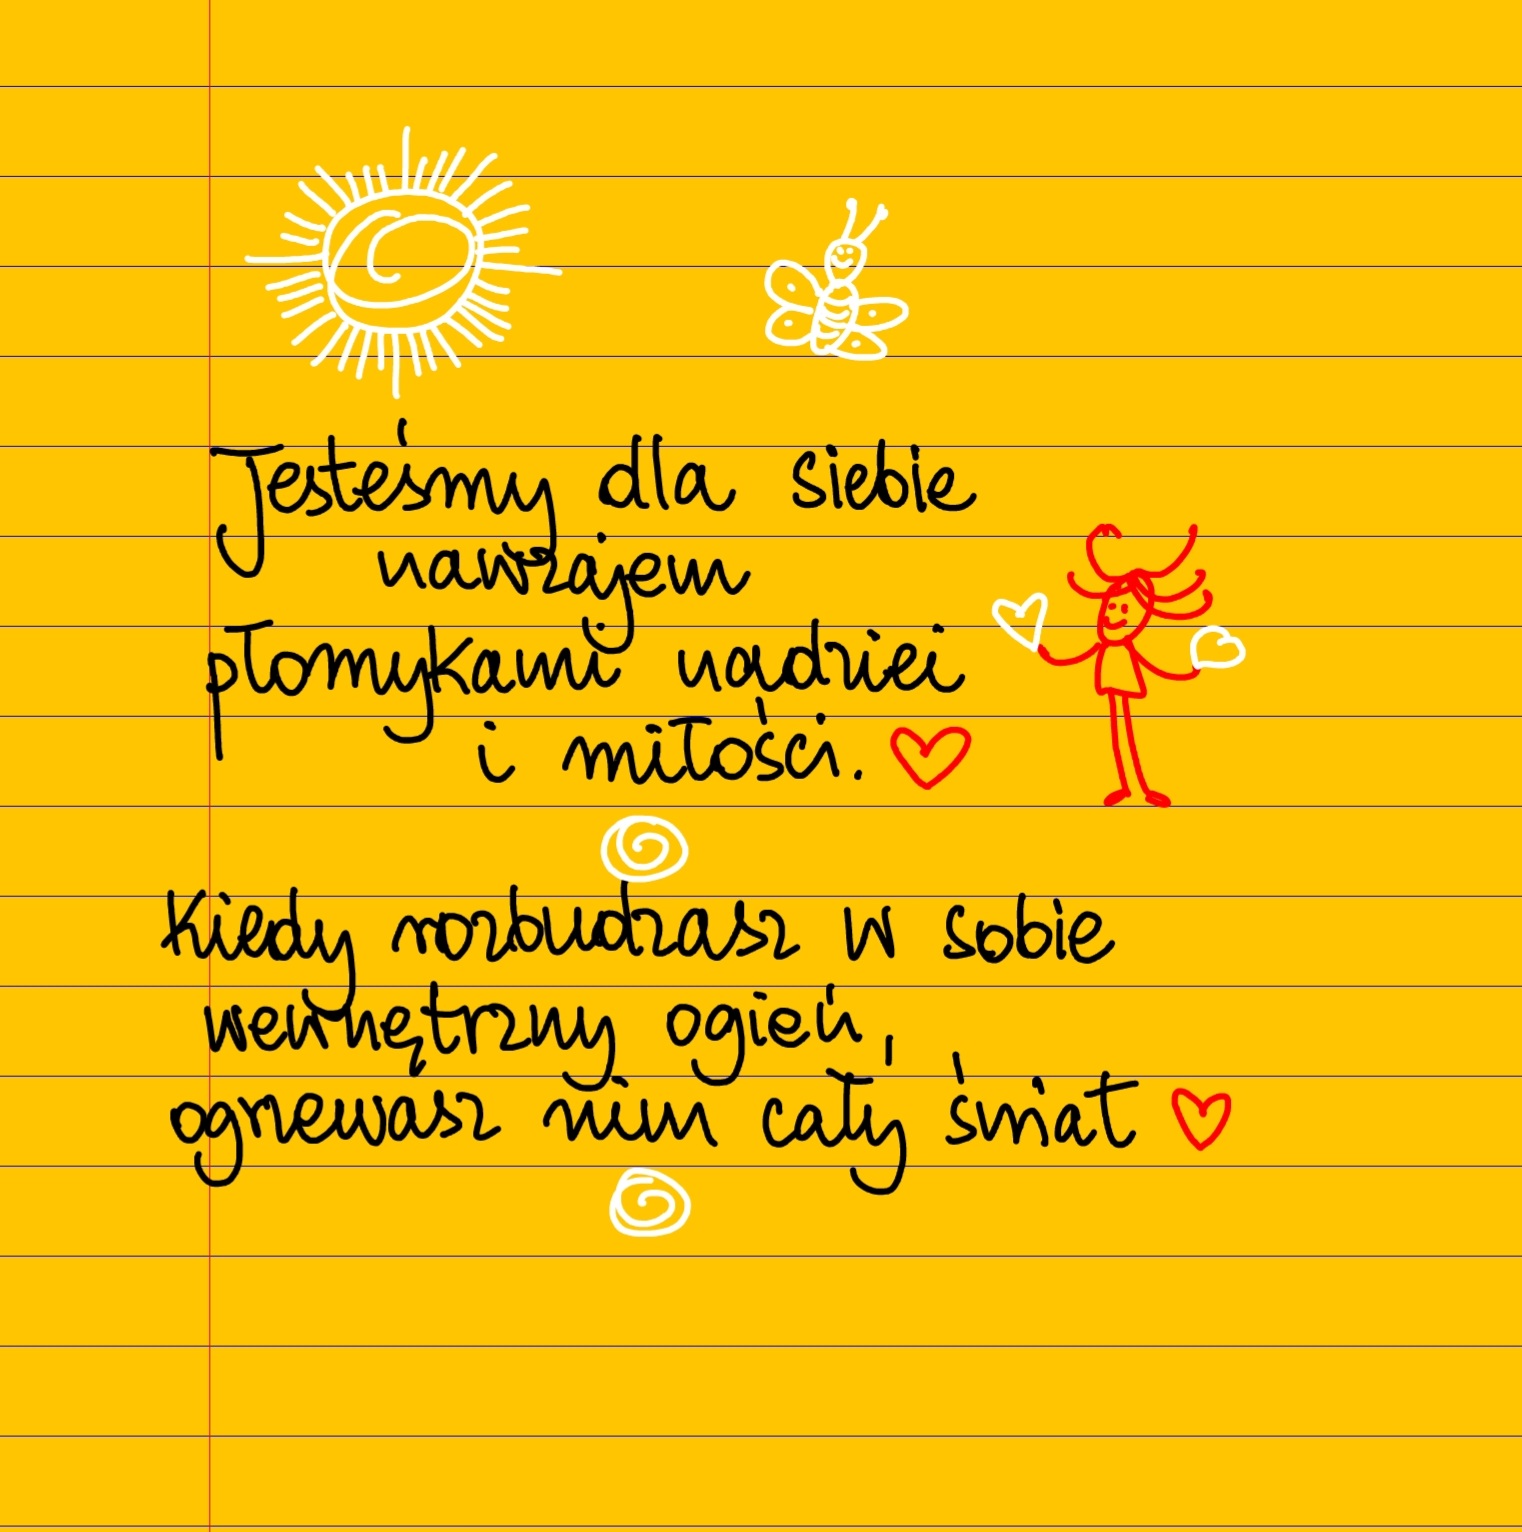 Jesteśmy dla siebie
nawzajem
płomykami nadziei
i miłości.
Kiedy rozbudzasz w sobie
wewnętrzny ogień,
ogrzewasz nim cały świat